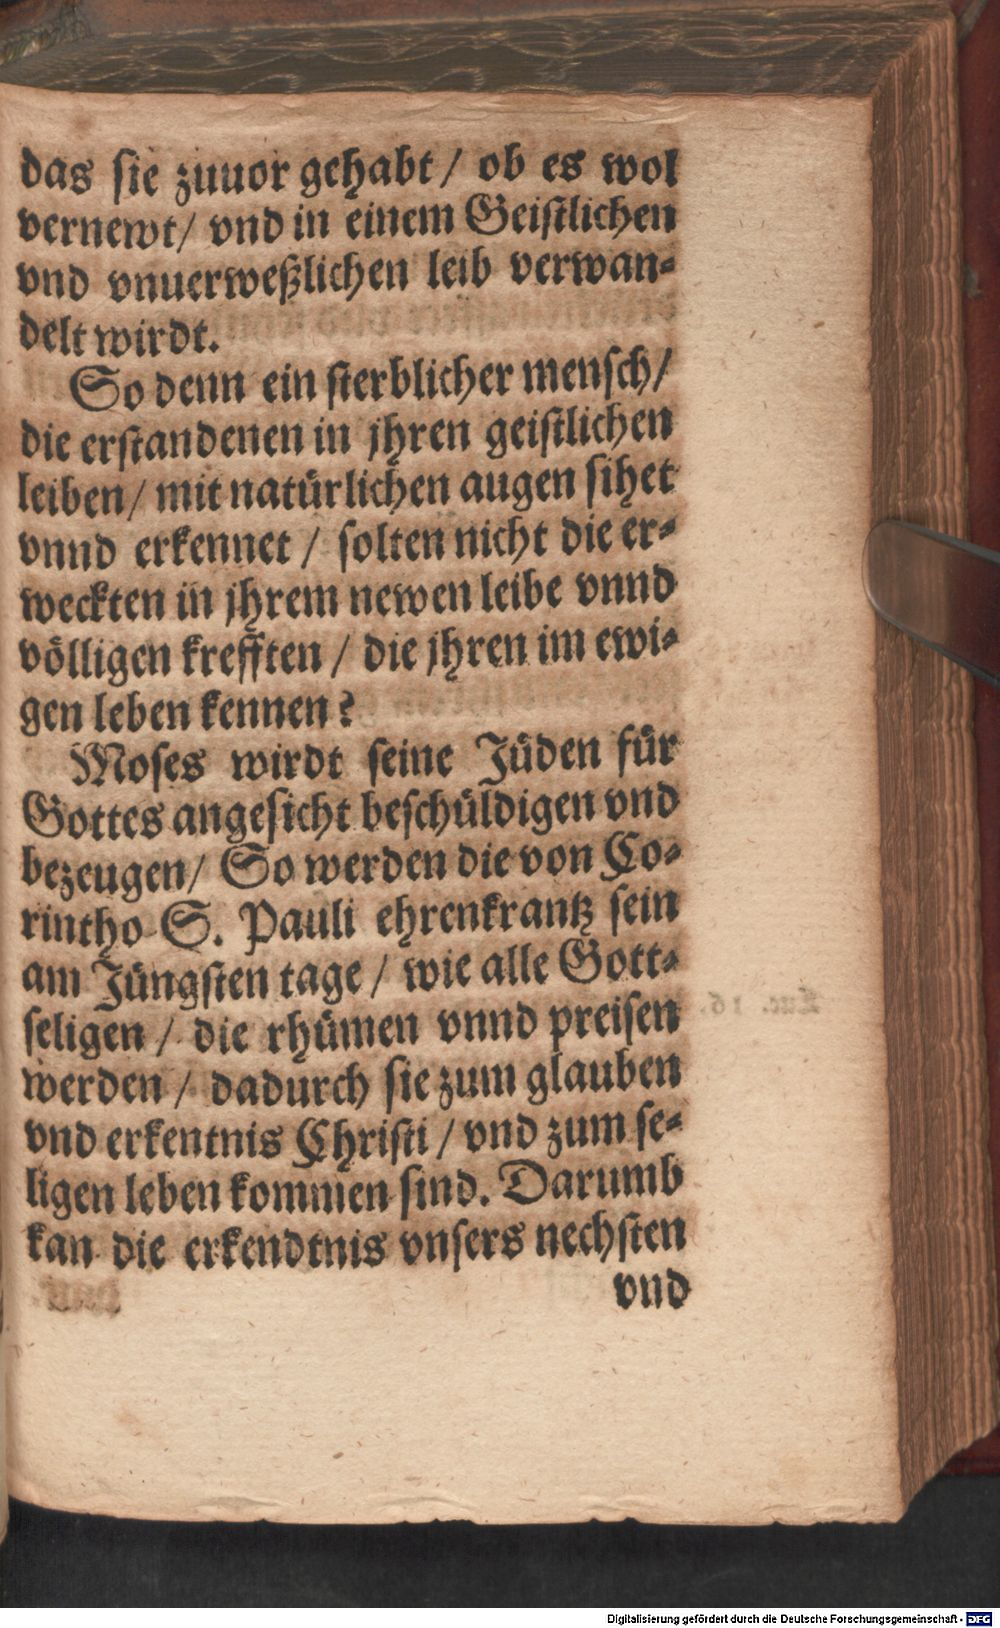 das sie zuuor gehabt / ob es wol
vernewt / vnd in einem Geistlichen
vnd vnuerweßlichen leib verwan-
delt wirdt.
So denn ein sterblicher mensch /
die erstandenen in jhren geistlichen
leiben / mit natürlichen augen sihet
vnnd erkennet / solten nicht die er-
weckten in jhrem newen leibe vnnd
völligen krefften / die jhren im ewi-
gen leben kennen?
Moses wirdt seine Jüden für
Gottes angesicht beschüldigen vnd
bezeugen / So werden die von Co-
rintho S. Pauli ehrenkrantz sein
am Jüngsten tage / wie alle Gott-
seligen / die rhümen vnnd preisen
werden / dadurch sie zum glauben
vnd erkentnis Christi / vnd zum se-
ligen leben kommen sind. Darumb
kan die erkendtnis vnsers nechsten
vnd
Digitalisierung gefördert durch die Deutsche Forschungsgemeinschaft - DFG